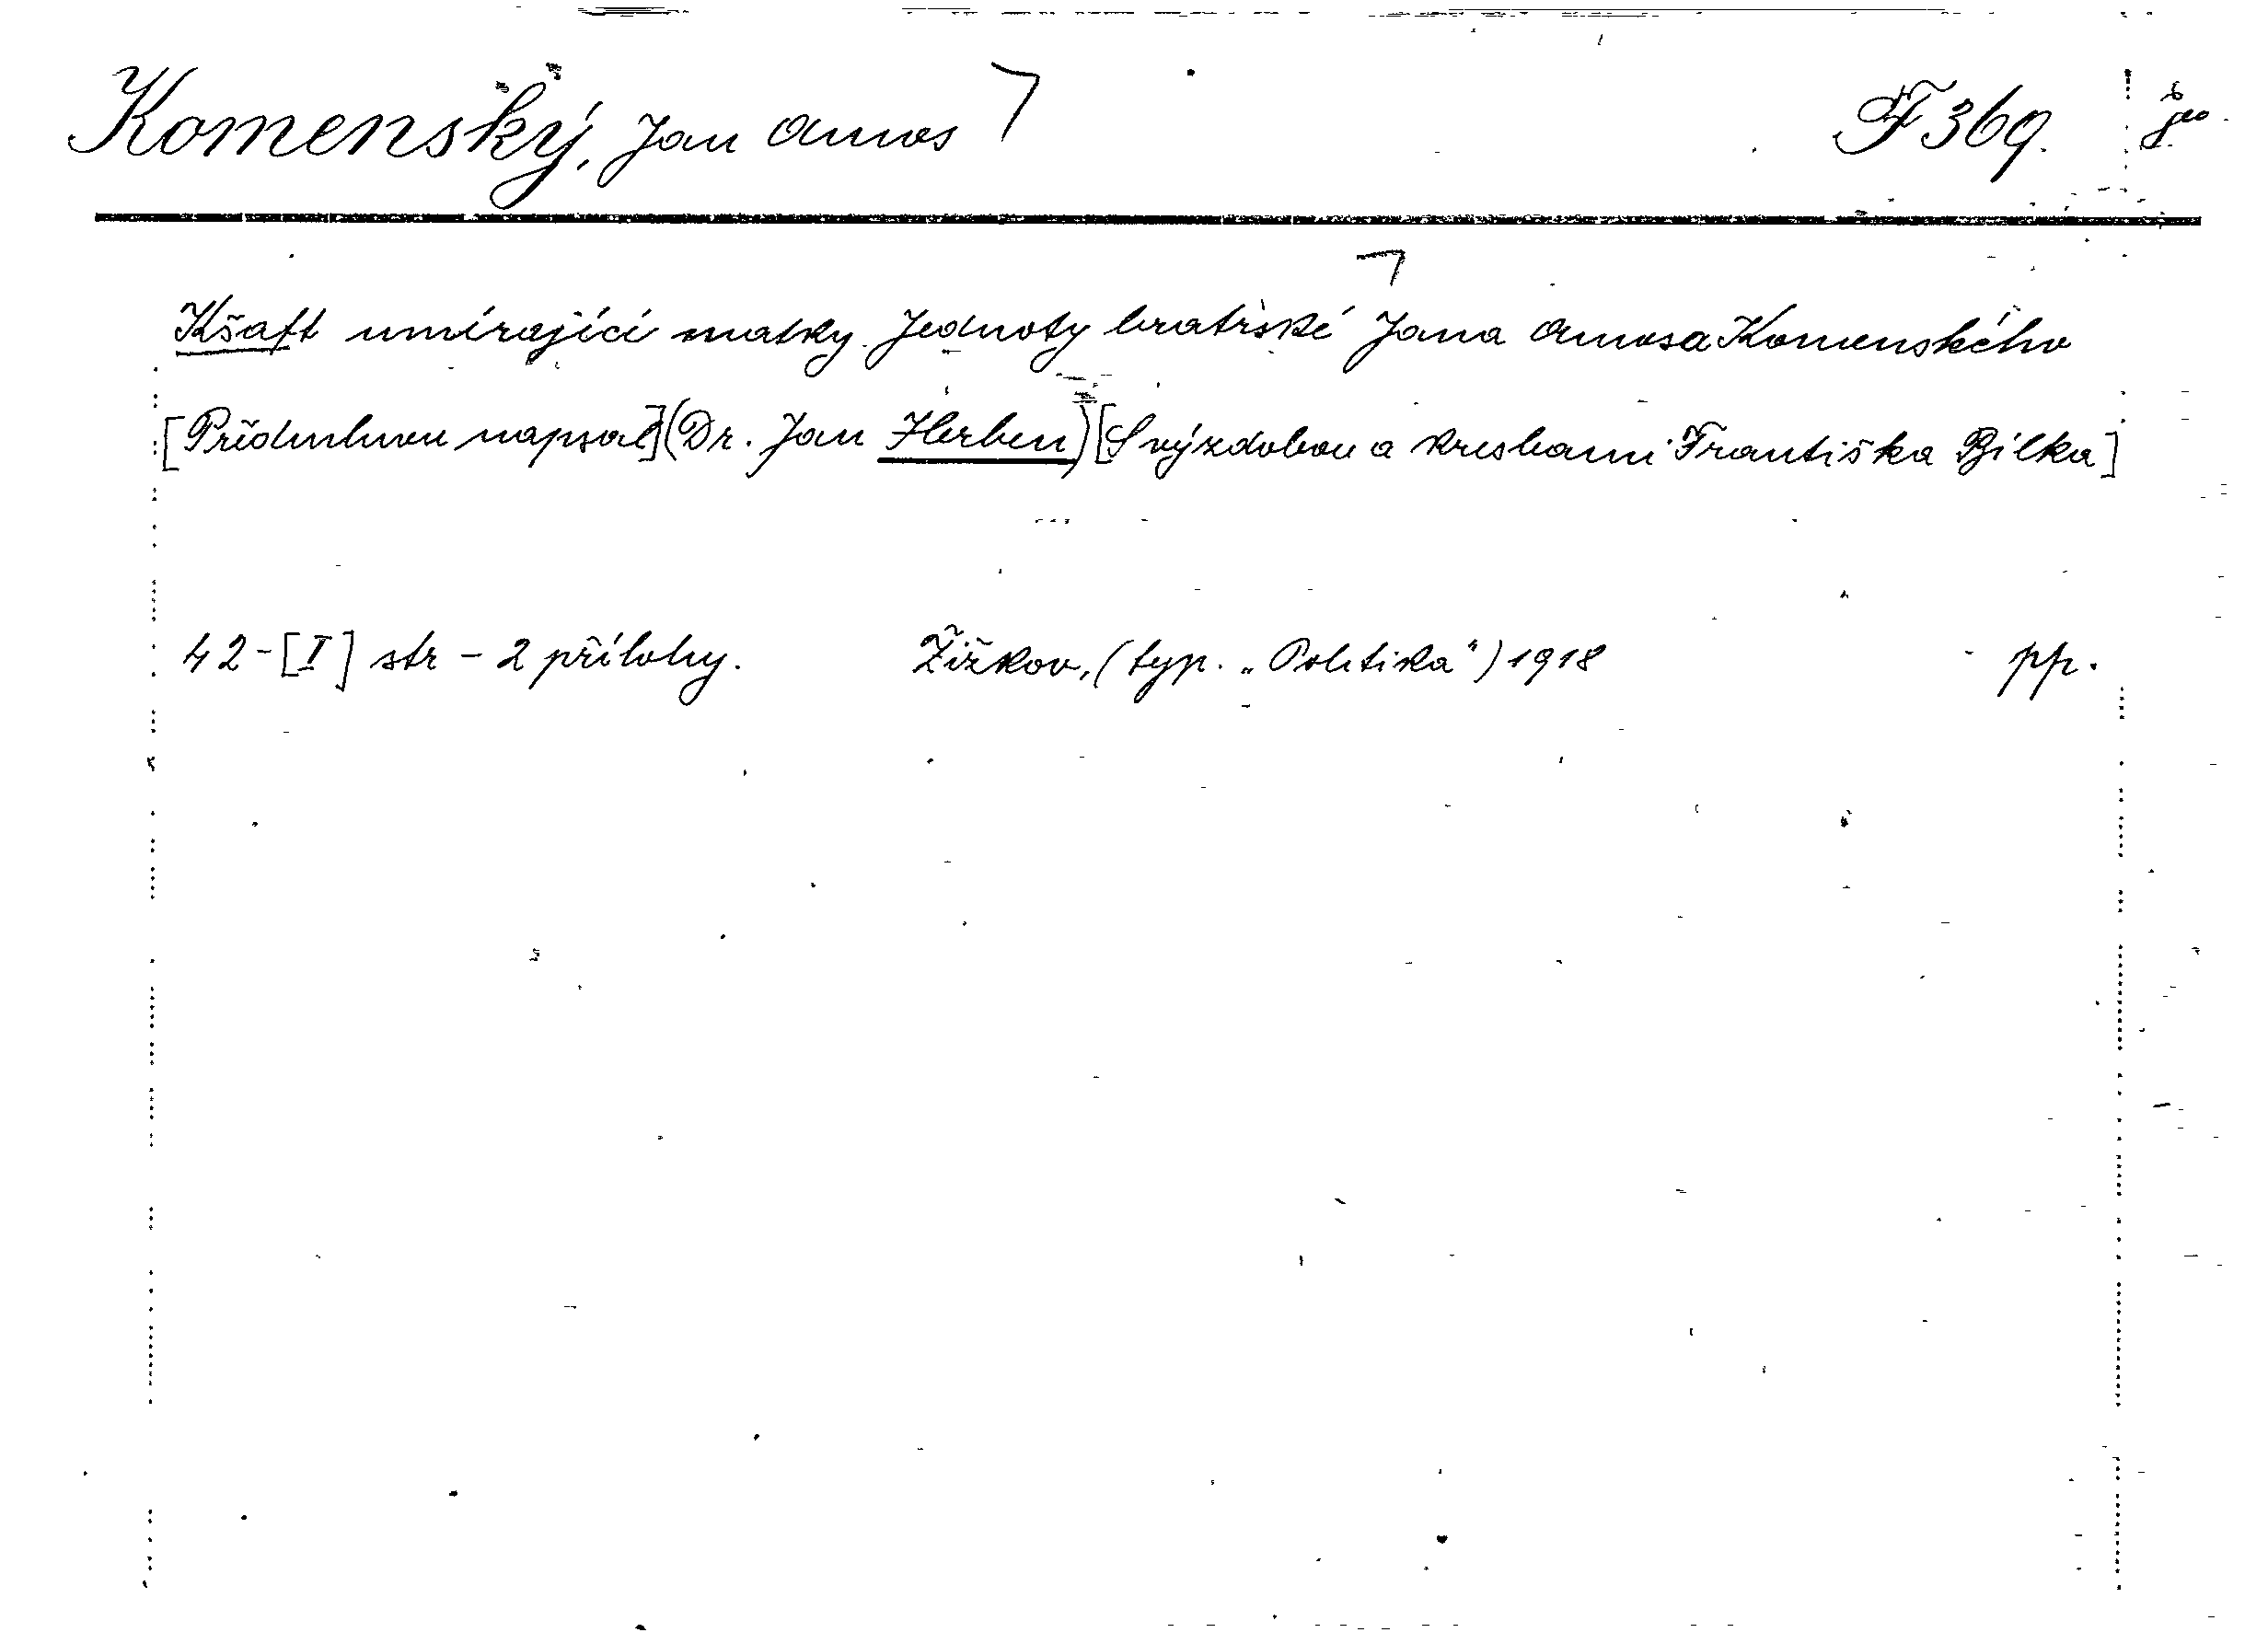 Komenský, Jan Amos ㄱ F 369.
Kšaft umírající matky Jednoty bratrské ㄱ Jana Amosa Komenského
[Předmluvu napsal] (Dr. Jan Herben) [S výzdobou a kresbami Františka Bílka]
42-[I] str - 2 přílohy. Žižkov, (typ. „Politika") 1918 pp.